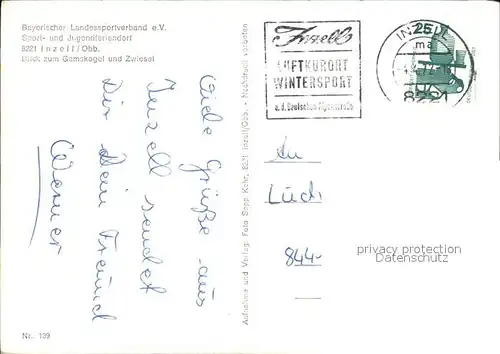 Bayerischer Landessportverband e.V.
Sport- und Jugendferiendorf
8221 Inzell/Obb.
Blick zum Gamskogel und Zwiesel
Viele Grüße aus
Inzell sendet
Dir Dein Freund
Werner
Nr. 139
Aufnahme und Verlag: Foto Sepp Kehr, 8221 Inzell/Obb. - Nachdruck verboten
Inzell
LUFTKURORT
WINTERSPORT
a.d. Deutschen Alpenstraße
INZELL
25
8221
An
844-
privacy protection
Datenschutz